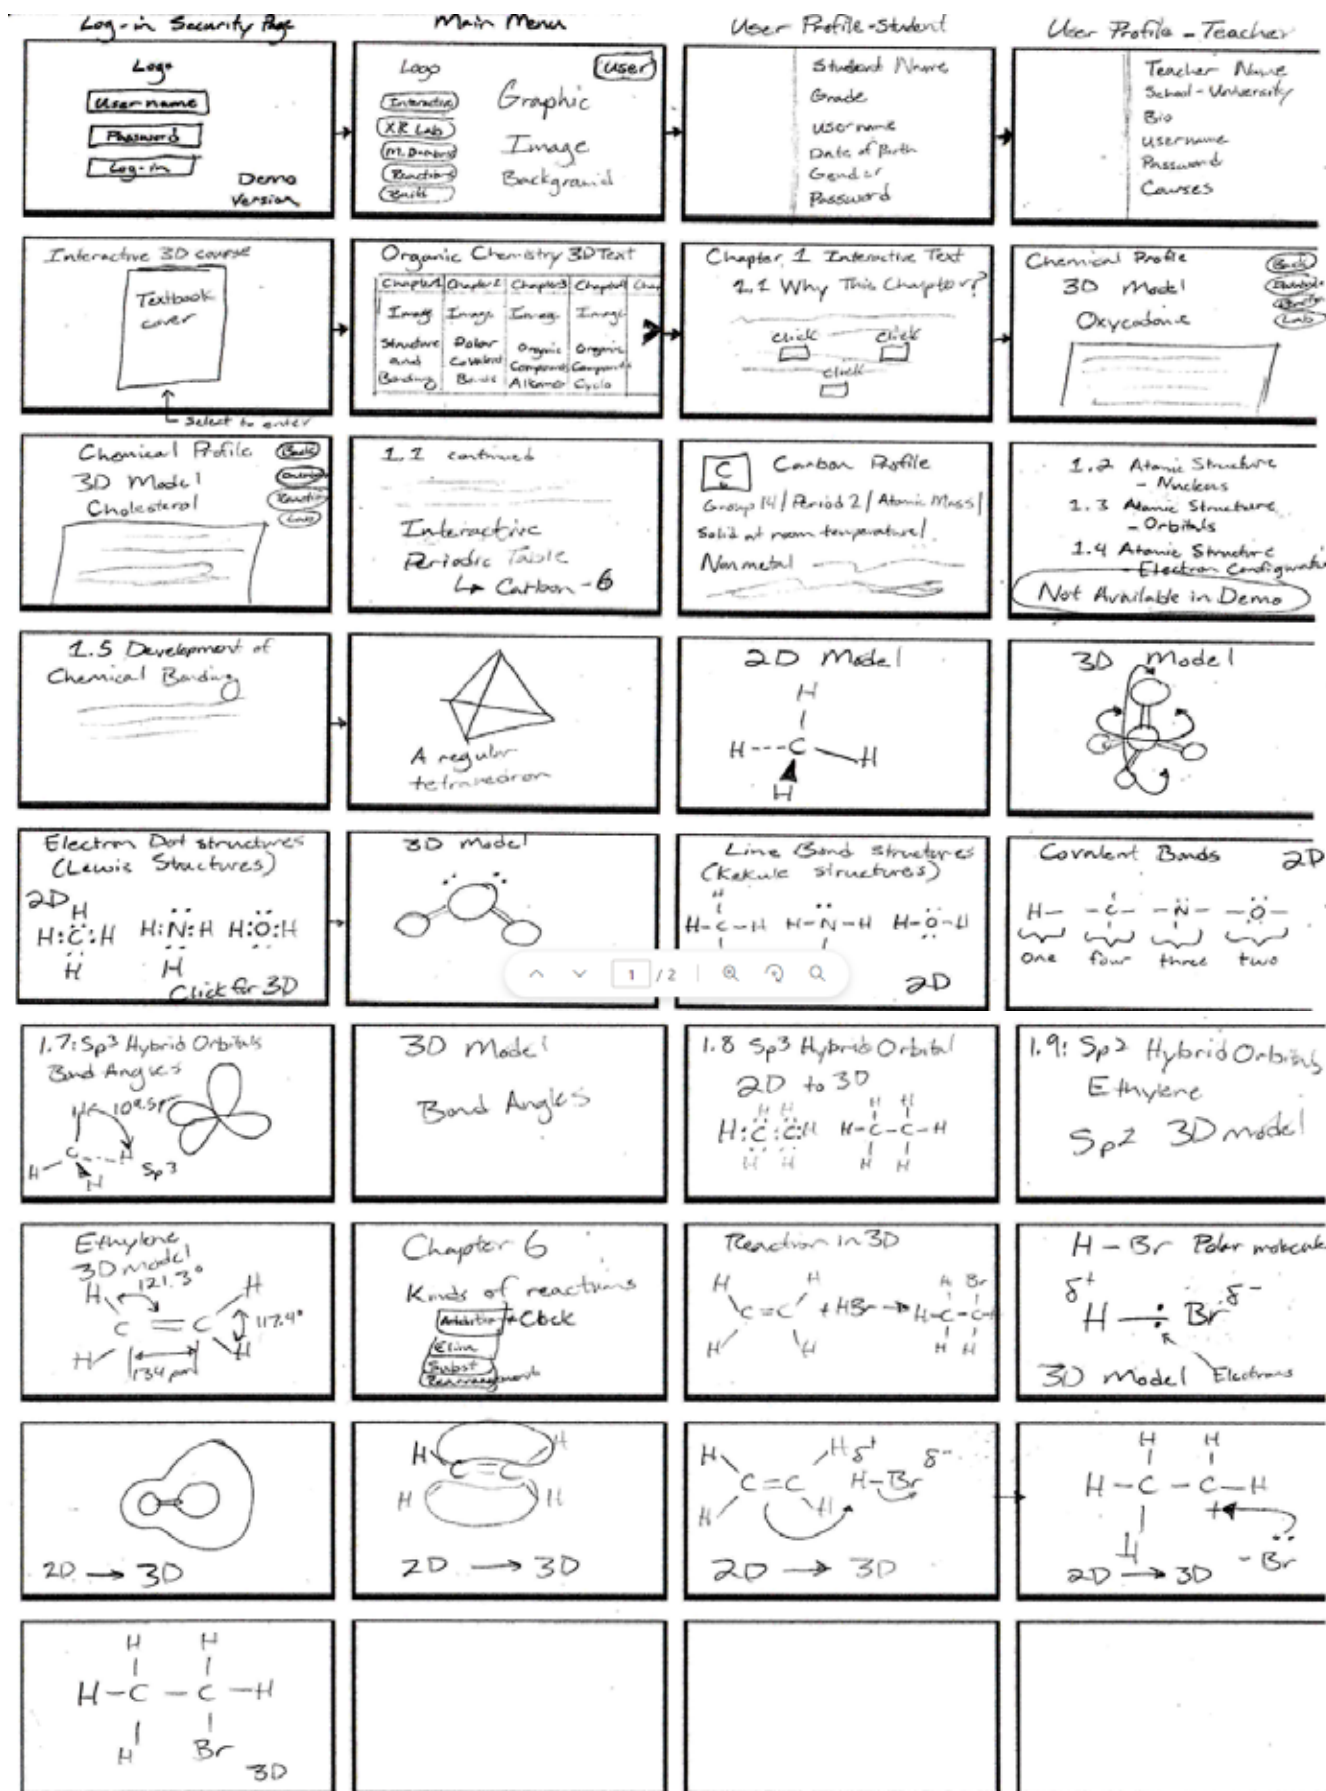 Log-in Security Page
Logo
Username
Password
Log-in
Demo
Version
Main Menu
Logo
User
Interactive
XR Lab
Reactions
Build
Graphic
Image
Background
User Profile-Student
Student Name
Grade
Username
Date of Birth
Gender
Password
User Profile - Teacher
Teacher Name
School-University
Bio
Username
Password
Courses
Interactive 3D course
Textbook
cover
Select to enter
Organic Chemistry 3D Text
Chapter1 Chapter2 Chapter3 Chapter4 Chap
Image Image Image Image
Structure and Bonding
Polar Covalent Bonds
Organic Compounds Alkanes
Organic Compounds Cyclo
Chapter 1 Interactive Text
1.1 Why This Chapter?
click click
click
Chemical Profile
3D Model
Oxycodone
Back
Lab
Chemical Profile
3D Model
Cholesterol
Back
Reaction
Lab
1.1 continued
Interactive
Periodic Table
↳ Carbon - 6
C
6
Carbon Profile
Group 14 / Period 2 / Atomic Mass /
Solid at room temperature /
Nonmetal
1.2 Atomic Structure
- Nucleus
1.3 Atomic Structure
- Orbitals
1.4 Atomic Structure
- Electron Configurati
Not Available in Demo
1.5 Development of
Chemical Bonding
A regular
tetrahedron
2D Model
H
H---C H
H
3D Model
Electron Dot structures
(Lewis Structures)
2D
H
H:C:H H:N:H H:O:H
H H
Click for 3D
3D Model
Line Bond structures
(Kekule structures)
H
H-C-H H-N-H H-O-H
2D
1 / 2
Covalent Bonds 2D
H- -C- -N- -O-
one four three two
1.7: Sp3 Hybrid Orbitals
Bond Angles
H 109.5°
C
H H
H
Sp3
3D Model
Bond Angles
1.8 Sp3 Hybrid Orbital
2D to 3D
H H H H
H:C:C:H H-C-C-H
H H H H
1.9: Sp2 Hybrid Orbitals
Ethylene
Sp2 3D model
Ethylene
3D model
121.3°
H H
C = C 117.4°
H H
134 pm
Chapter 6
Kinds of reactions
Addition Click
Elim
Subst
Rearrangement
Reaction in 3D
H H H Br
C=C + HBr → H-C-C-H
H H H H
H - Br Polar molecule
δ+ δ-
H Br
Electrons
3D Model
2D → 3D
H H
C = C
H H
2D → 3D
H H δ+ δ-
C=C H-Br
H H
2D → 3D
H H
H - C - C - H
+
H
- Br
2D → 3D
H H
H - C - C - H
H Br
3D